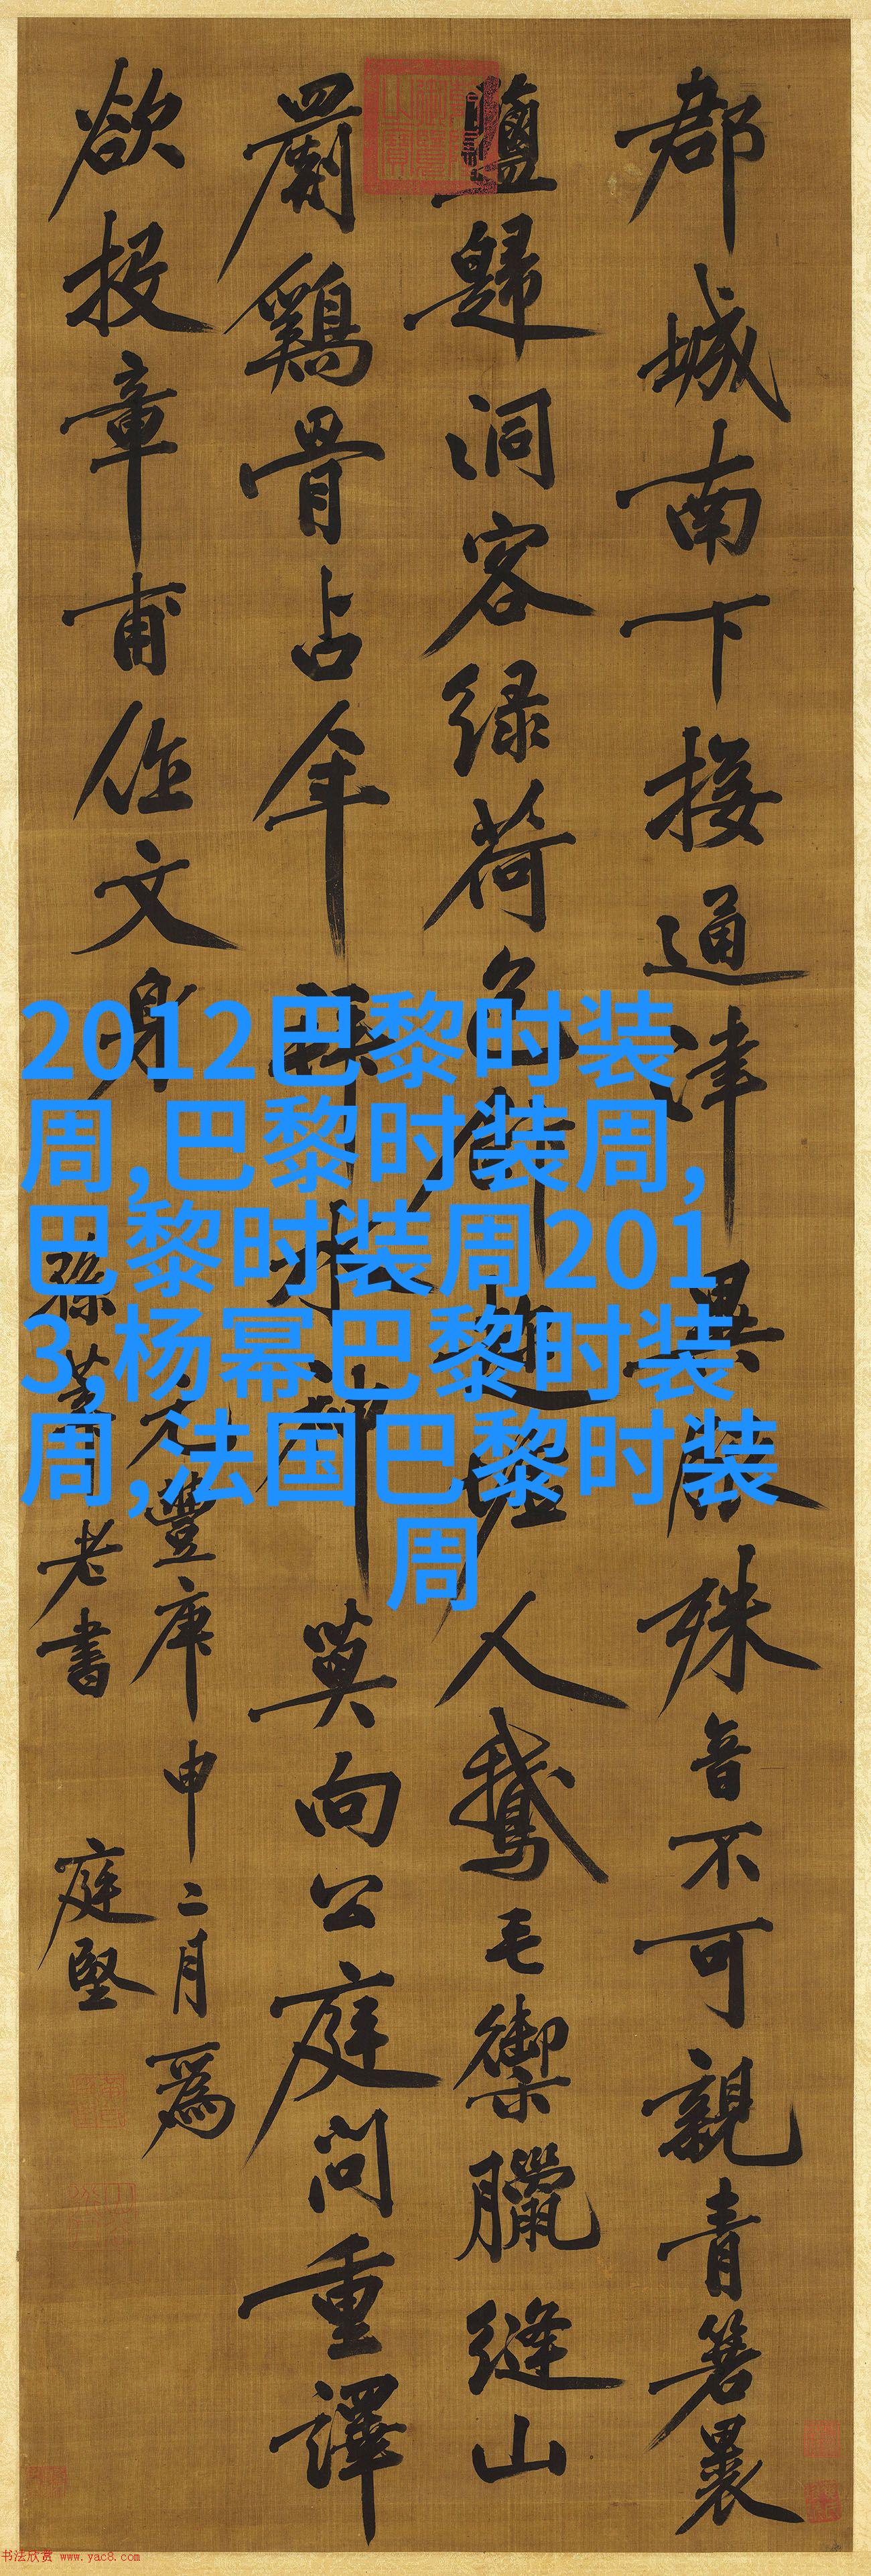 郡城南下接通津異服殊音不可親青箬裹
鹽歸洞客緑荷包飯趁虛人鵝毛禦臘縫山
罽鷄骨占年拜水神莫向公庭問重譯
欲投章甫作文身
元豐庚申二月爲
孫莘老書 庭堅
2012巴黎时装
周,巴黎时装周,
巴黎时装周201
3,杨幂巴黎时装
周,法国巴黎时装
周
书法欣赏 www.yac8.com